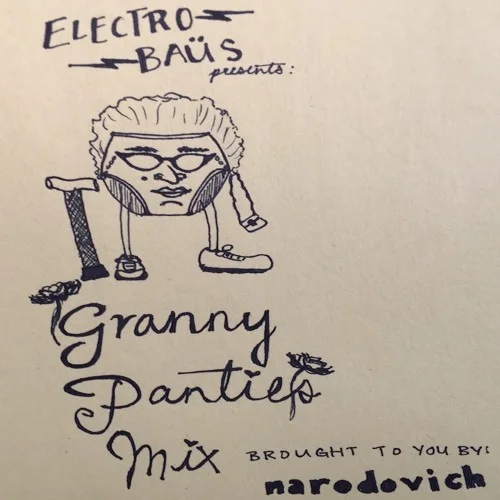 ELECTRO-
BAÜS
presents:
Granny
Panties
Mix
BROUGHT TO YOU BY:
narodovich